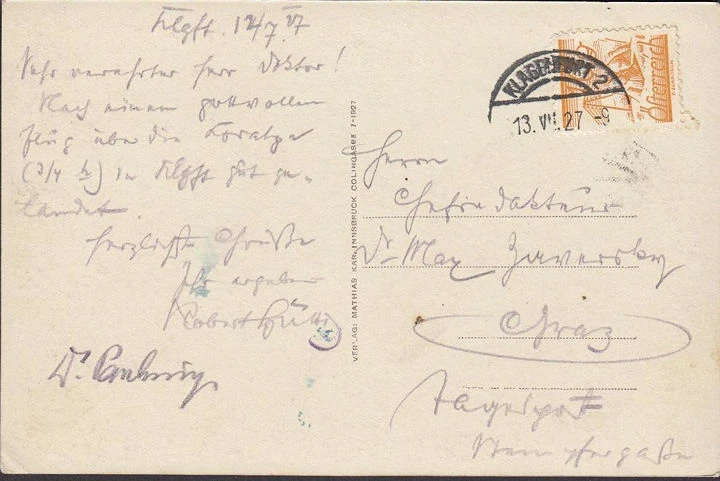 Klgft. 12/7 27
Sehr verehrter Herr Doktor!
Nach einem gottvollen
Flug über die Koralpe
(3/4 h) in Klgft gut ge-
landet.
Herzlichste Grüße
Ihr ergebener
Robert
KLAGENFURT 2
13. VII. 27 -9
Österreich
VERLAG: MATHIAS KARL INNSBRUCK COLINGASSE 7-1927
Herrn
Chefredakteur
Dr Max Zaversky
Graz
Tagespost
Stempfergaße